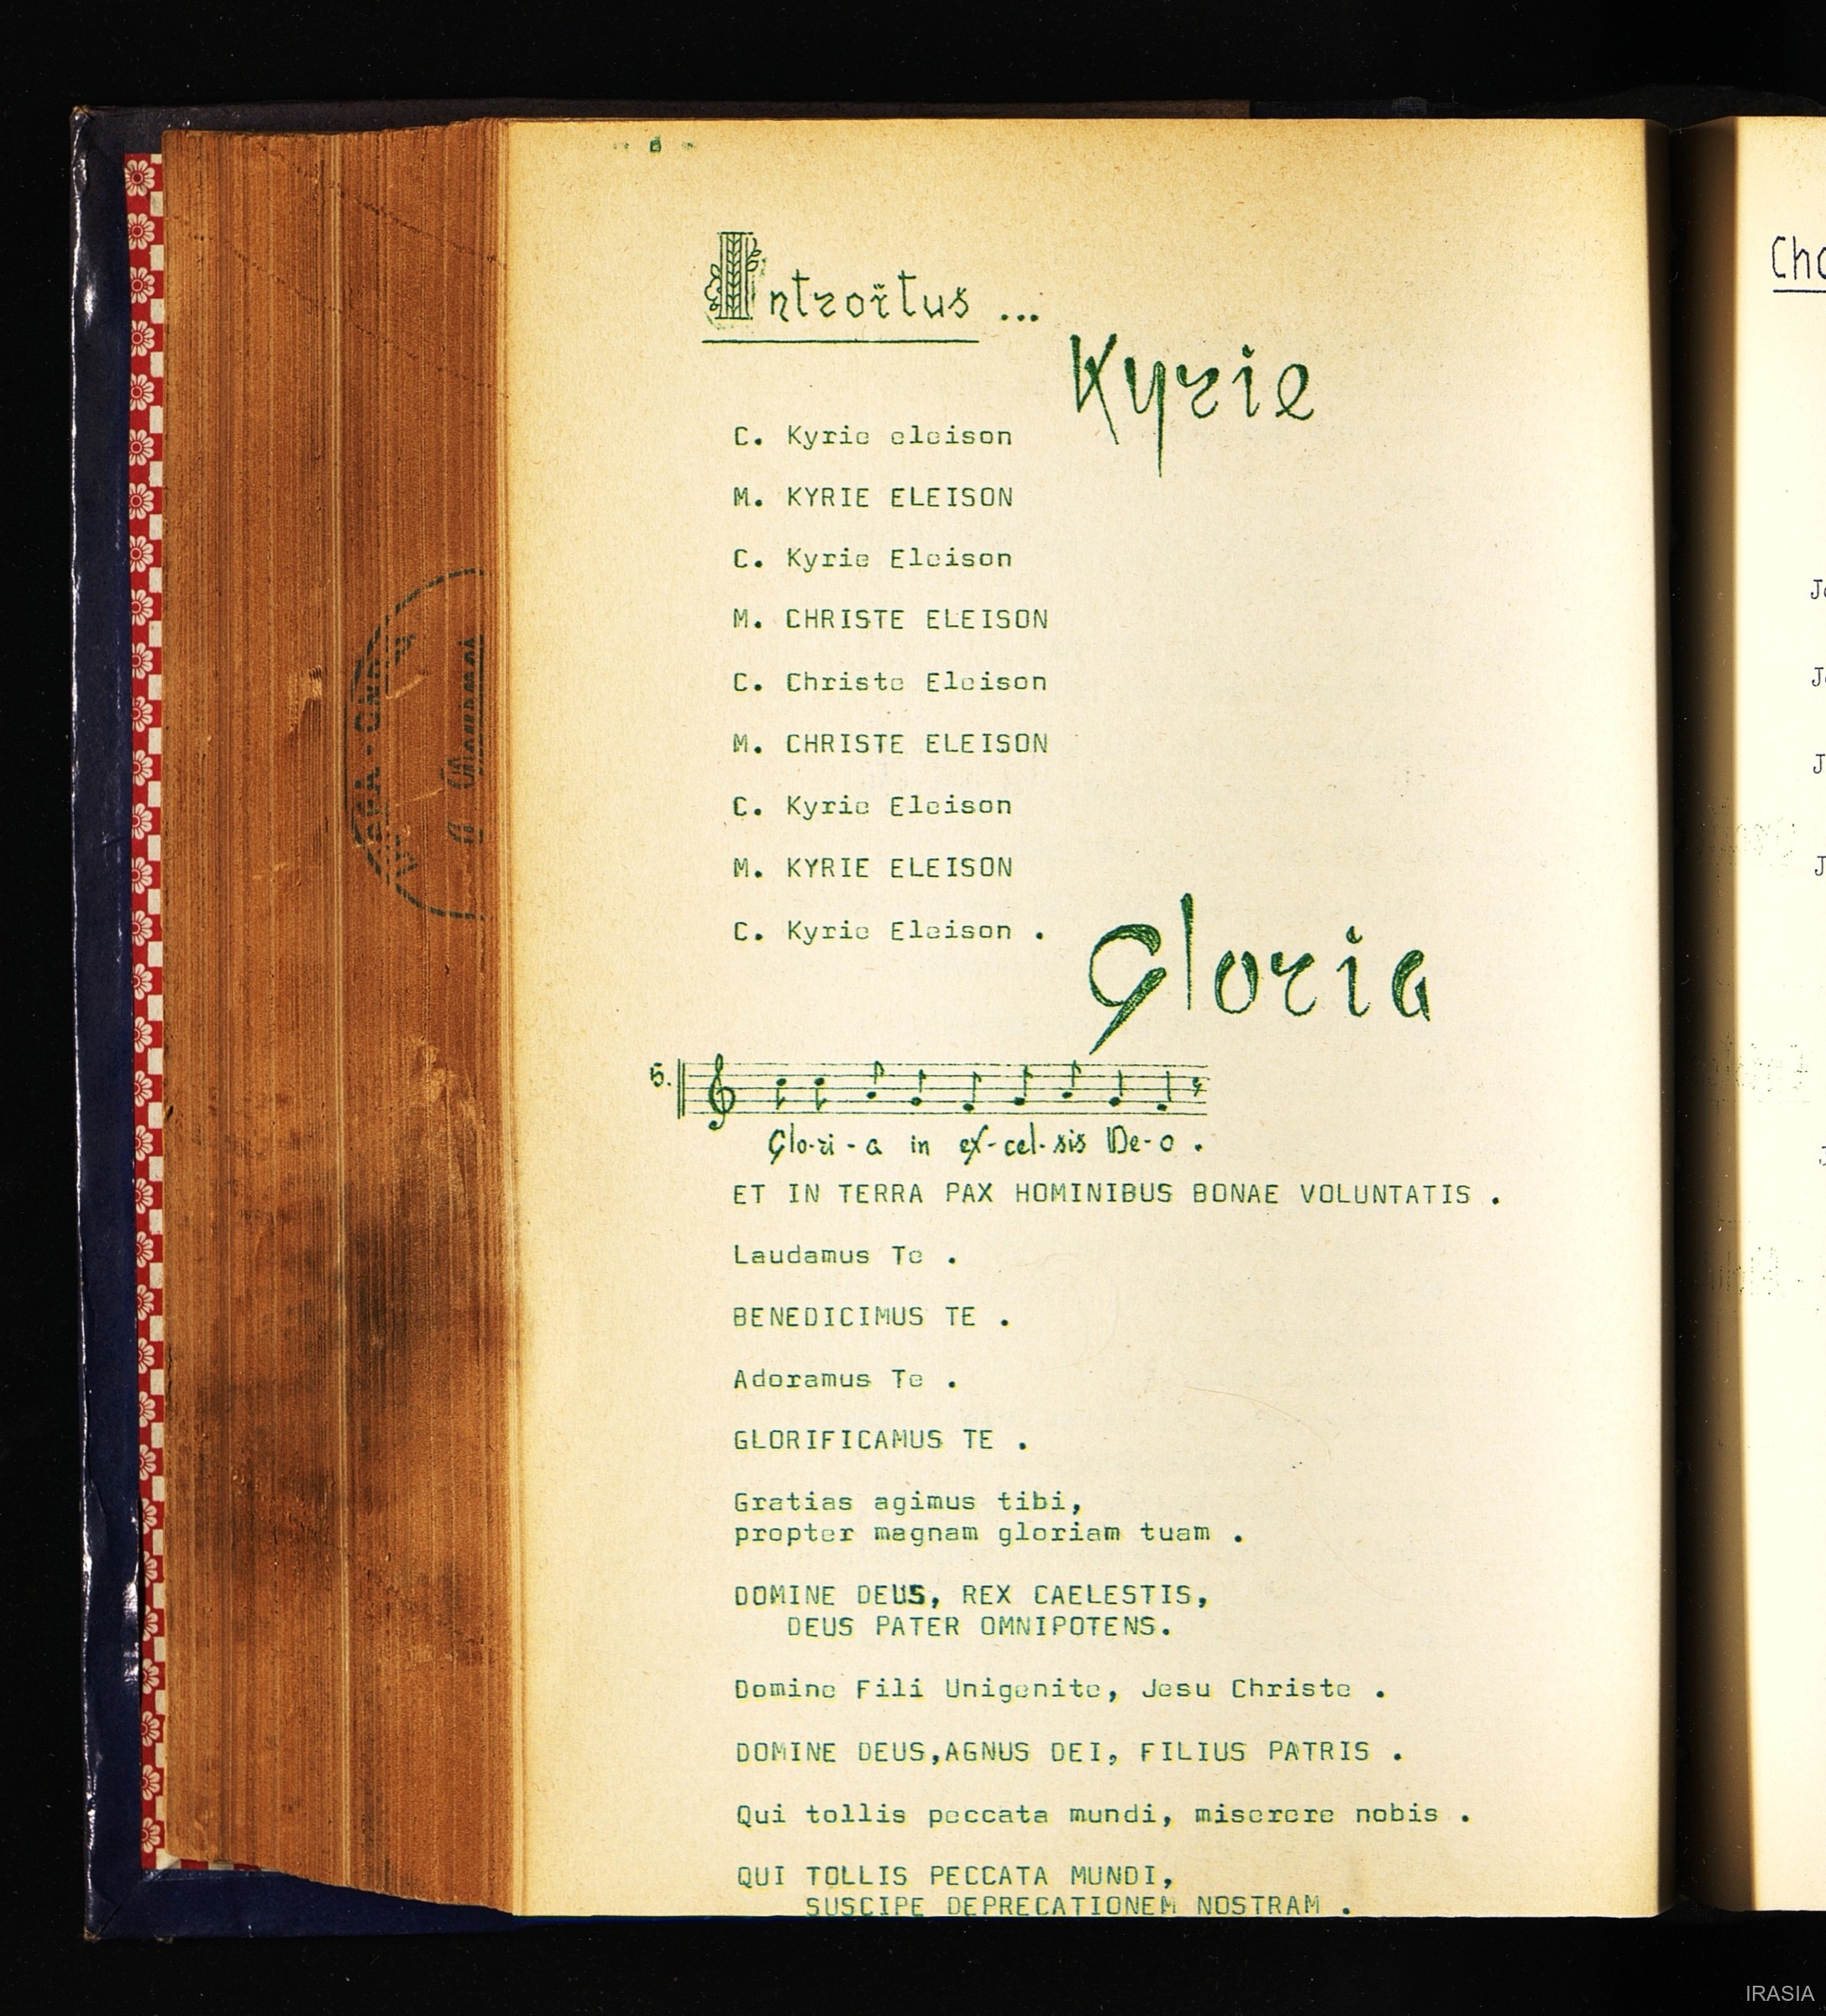 Introitus ...
Kyrie
C. Kyrie eleison
M. KYRIE ELEISON
C. Kyrie Eleison
M. CHRISTE ELEISON
C. Christe Eleison
M. CHRISTE ELEISON
C. Kyrie Eleison
M. KYRIE ELEISON
C. Kyrie Eleison .
Gloria
5.
Glo-ri-a in ex-cel-sis De-o .
ET IN TERRA PAX HOMINIBUS BONAE VOLUNTATIS .
Laudamus Te .
BENEDICIMUS TE .
Adoramus Te .
GLORIFICAMUS TE .
Gratias agimus tibi,
propter magnam gloriam tuam .
DOMINE DEUS, REX CAELESTIS,
DEUS PATER OMNIPOTENS.
Domine Fili Unigenite, Jesu Christe .
DOMINE DEUS,AGNUS DEI, FILIUS PATRIS .
Qui tollis peccata mundi, miserere nobis .
QUI TOLLIS PECCATA MUNDI,
SUSCIPE DEPRECATIONEM NOSTRAM .
IRASIA